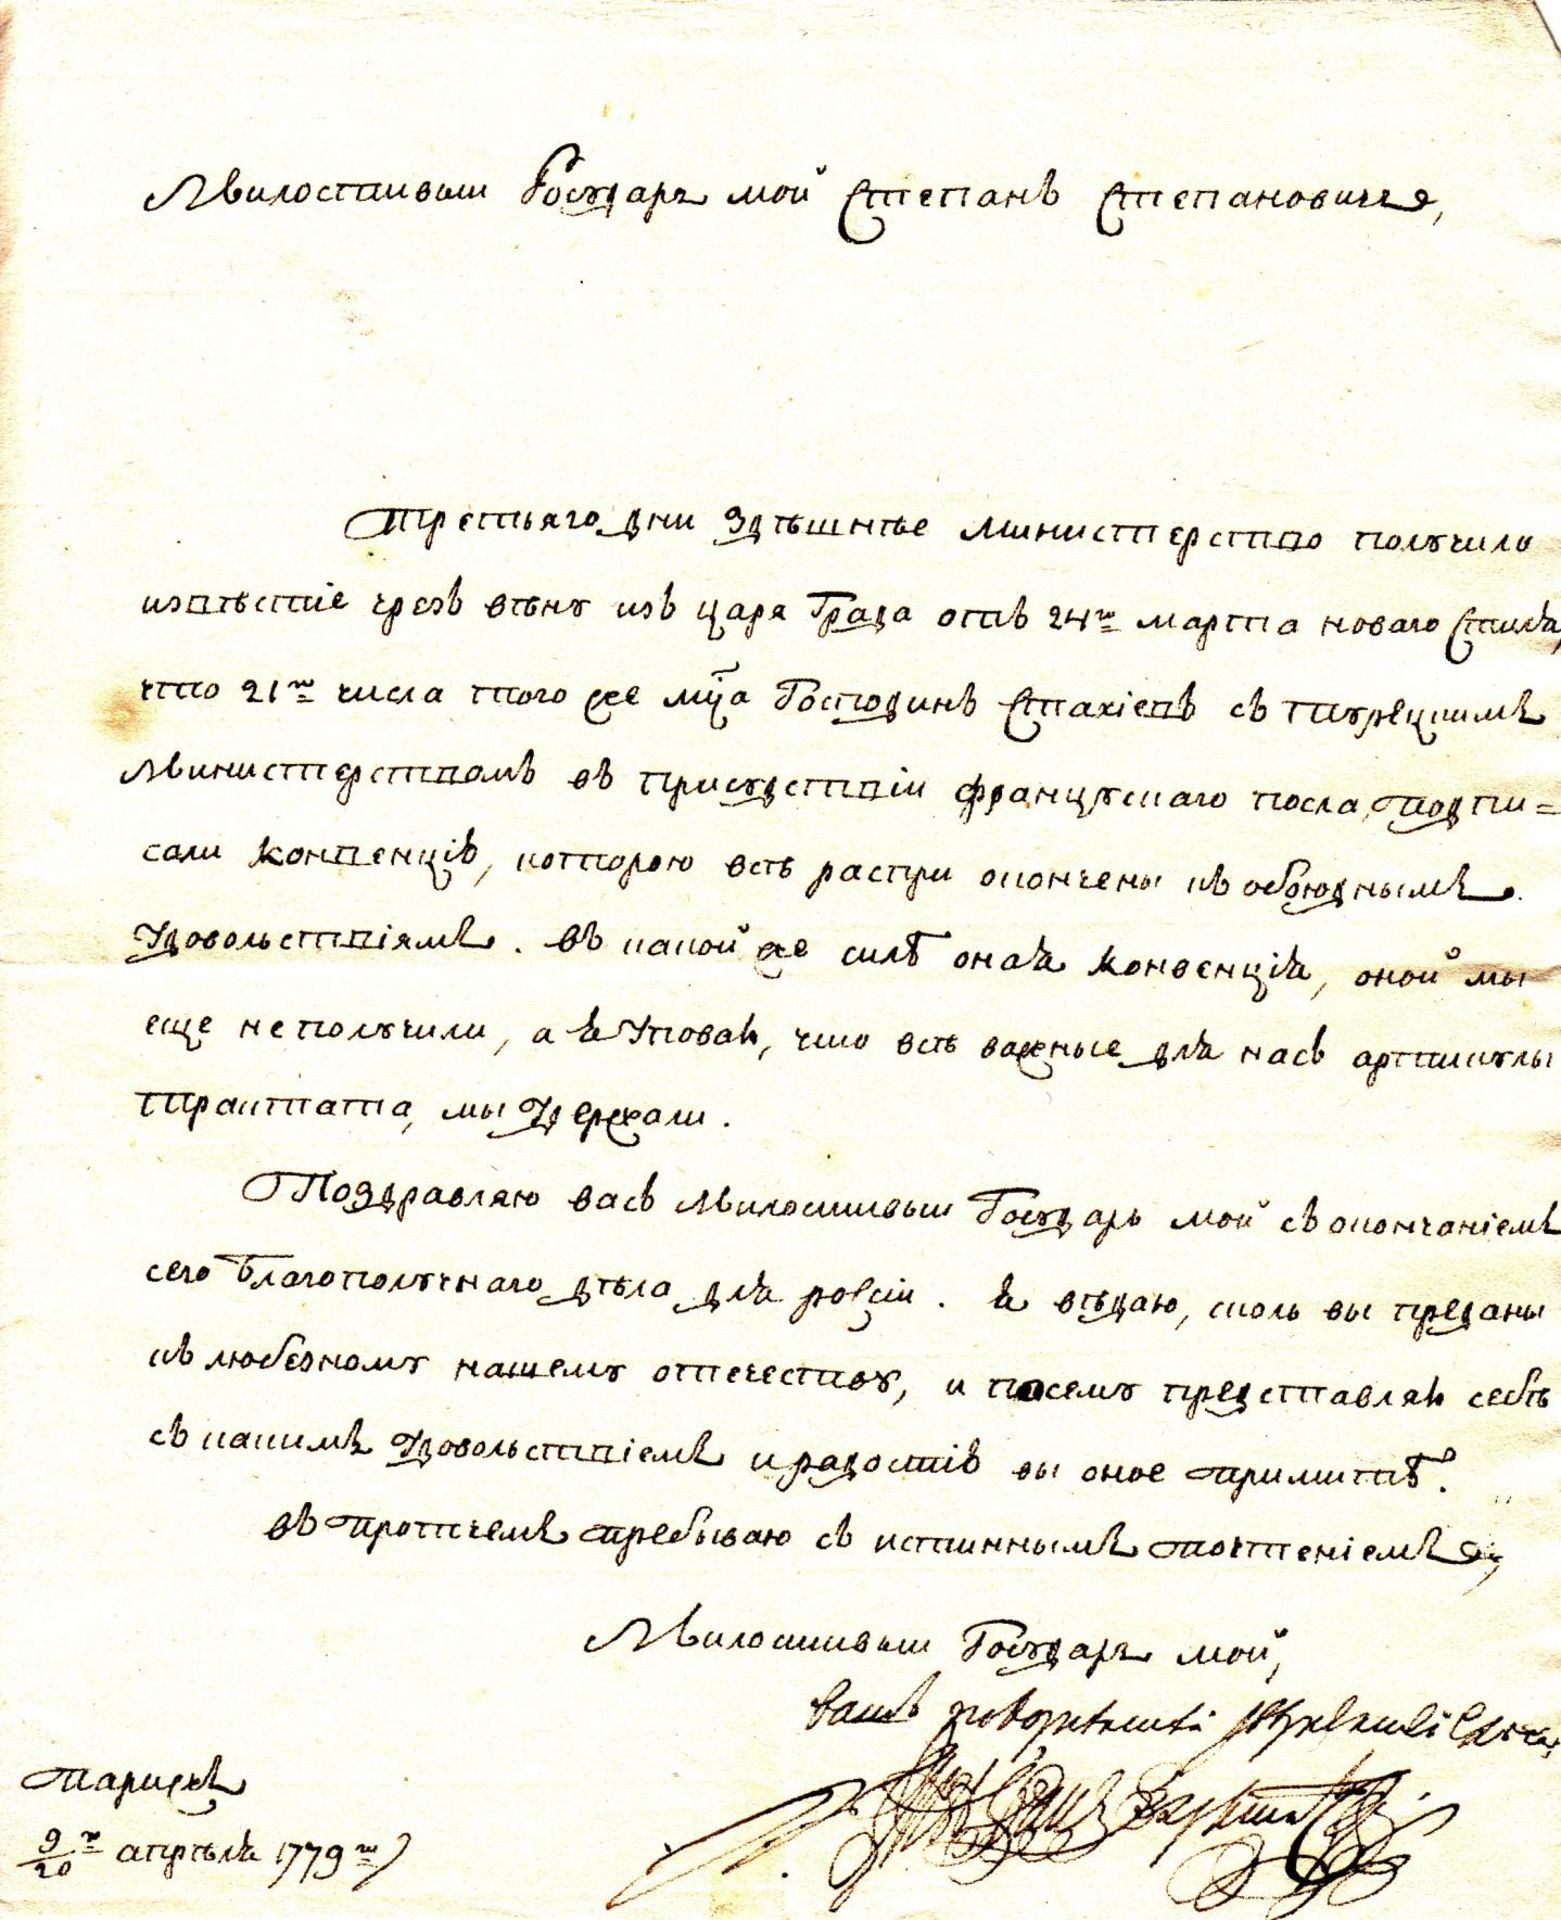 Милостивыи Государь мой Степанъ Степановиче,
Третьяго дни здѣшнѣе министерство получило
извѣстіе чрезъ вѣну изъ царя Града отъ 24го марта новаго Стиля,
что 21го числа того же мца Господинъ Стахіевъ съ турецкимъ
Министерствомъ въ присудствіи французскаго посла, подпи=
сали конвенцію, которою всѣ распри окончены къ обоюднымъ
Удовольствіямъ. Въ какой же силѣ оная конвенція, оной мы
еще неполучили, а я Уповаю, что всѣ важные для насъ артикулы
трактата, мы Удержали.
Поздравляю васъ Милостивыи Государь мой съ окончаніемъ
сего благополучнаго дѣла для росіи. я вѣдаю, сколь вы преданы
къ любезному нашему отечеству, и посему представляю себѣ
съ какимъ Удовольствіемъ и радостію вы оное примитѣ.
въ протчемъ пребываю съ истиннымъ почтеніемъ,
Милостивыи Государь мой,
вашъ покорнѣишій
Парижъ
9/20го апрѣля 1779го